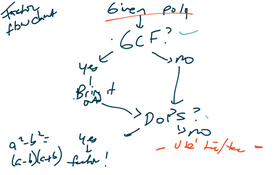 Factoring
flow chart
Given poly
GCF?
yes
no
Bring it
out
DoPS?
a²-b²=
(a-b)(a+b)
yes
factor!
no